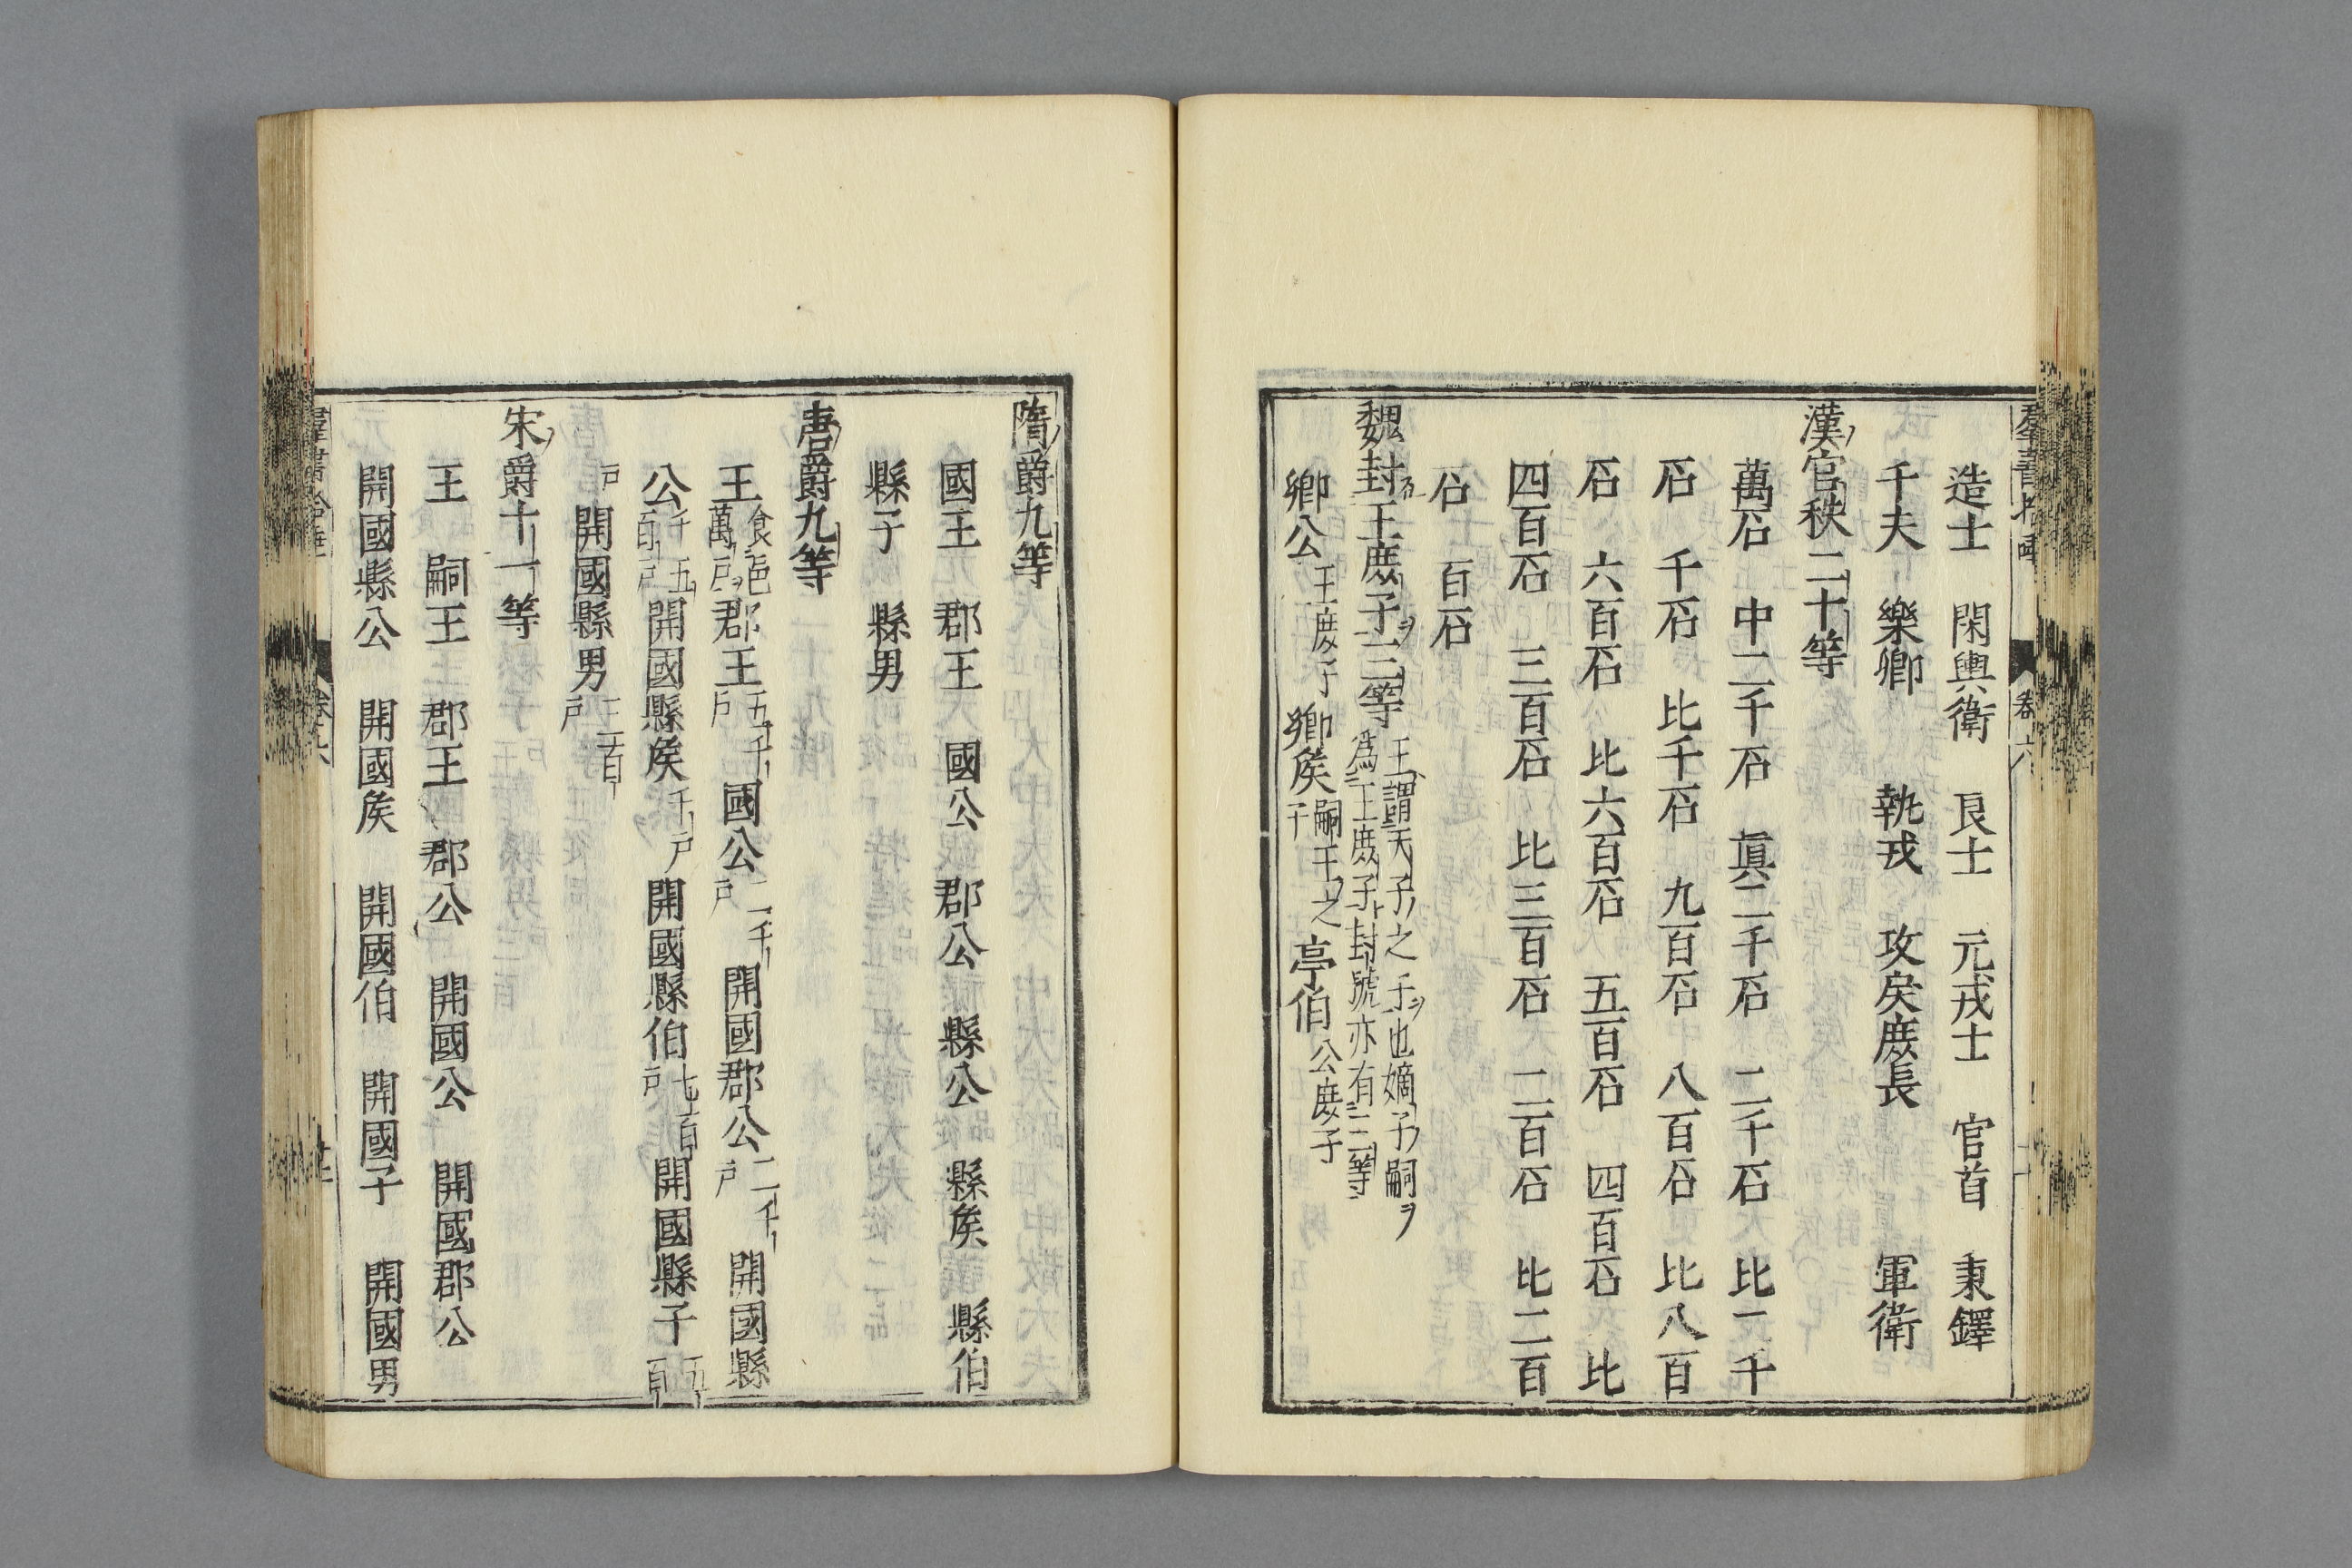 造士　閑輿衛　良士　元戎士　官首　秉鐸
千夫　樂卿　執戎　攻矦庶長　軍衛
漢官秩二十等
萬石　中二千石　眞二千石　二千石　比二千
石　千石　比千石　九百石　八百石　比八百
石　六百石　比六百石　五百石　四百石　比
四百石　三百石　比三百石　二百石　比二百
石　百石
魏封王庶子三等
王謂天子之子也嫡子嗣
爲王庶子封號亦有三等
鄉公王庶子鄉矦嗣王之子亭伯公庶子
隋爵九等
國王　郡王　國公　郡公　縣公　縣矦　縣伯
縣子　縣男
唐爵九等
王食邑萬戸郡王五千戸國公三千戸開國郡公二千戸開國縣
公千五百戸開國縣矦千戸開國縣伯七百戸開國縣子五百
戸開國縣男三百戸
宋爵十一等
王　嗣王　郡王　郡公　開國公　開國郡公
開國縣公　開國矦　開國伯　開國子　開國男